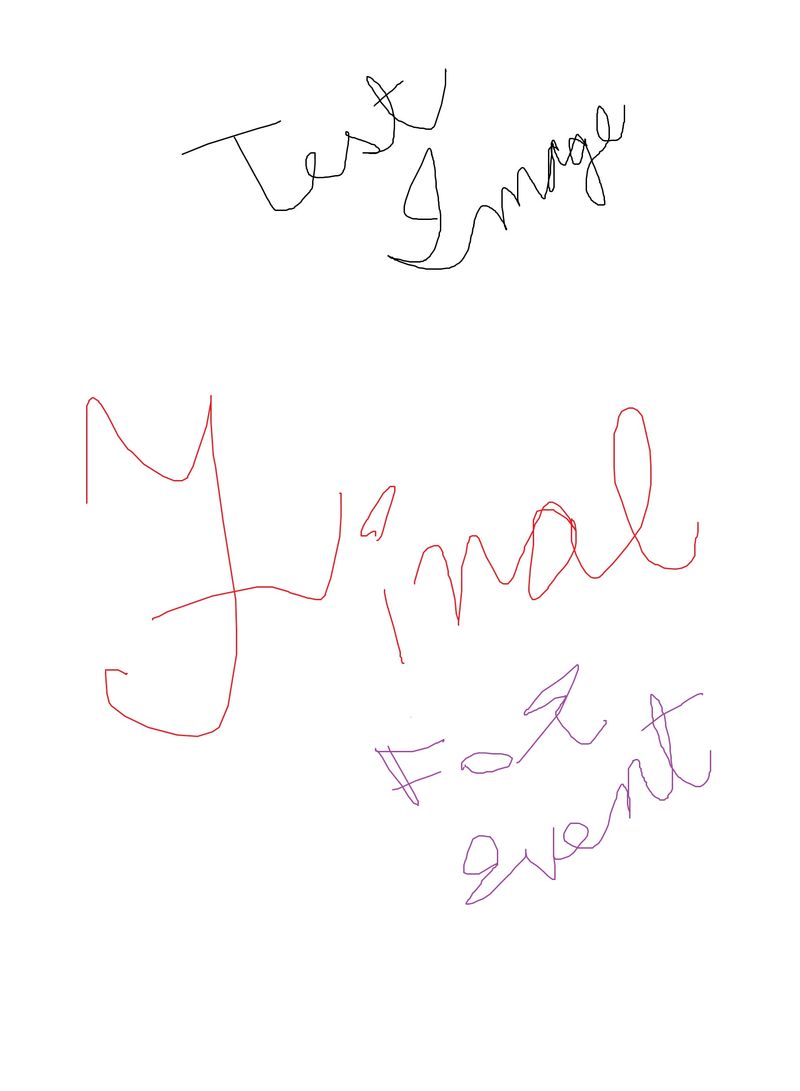 Test
Image
Final
For
Event